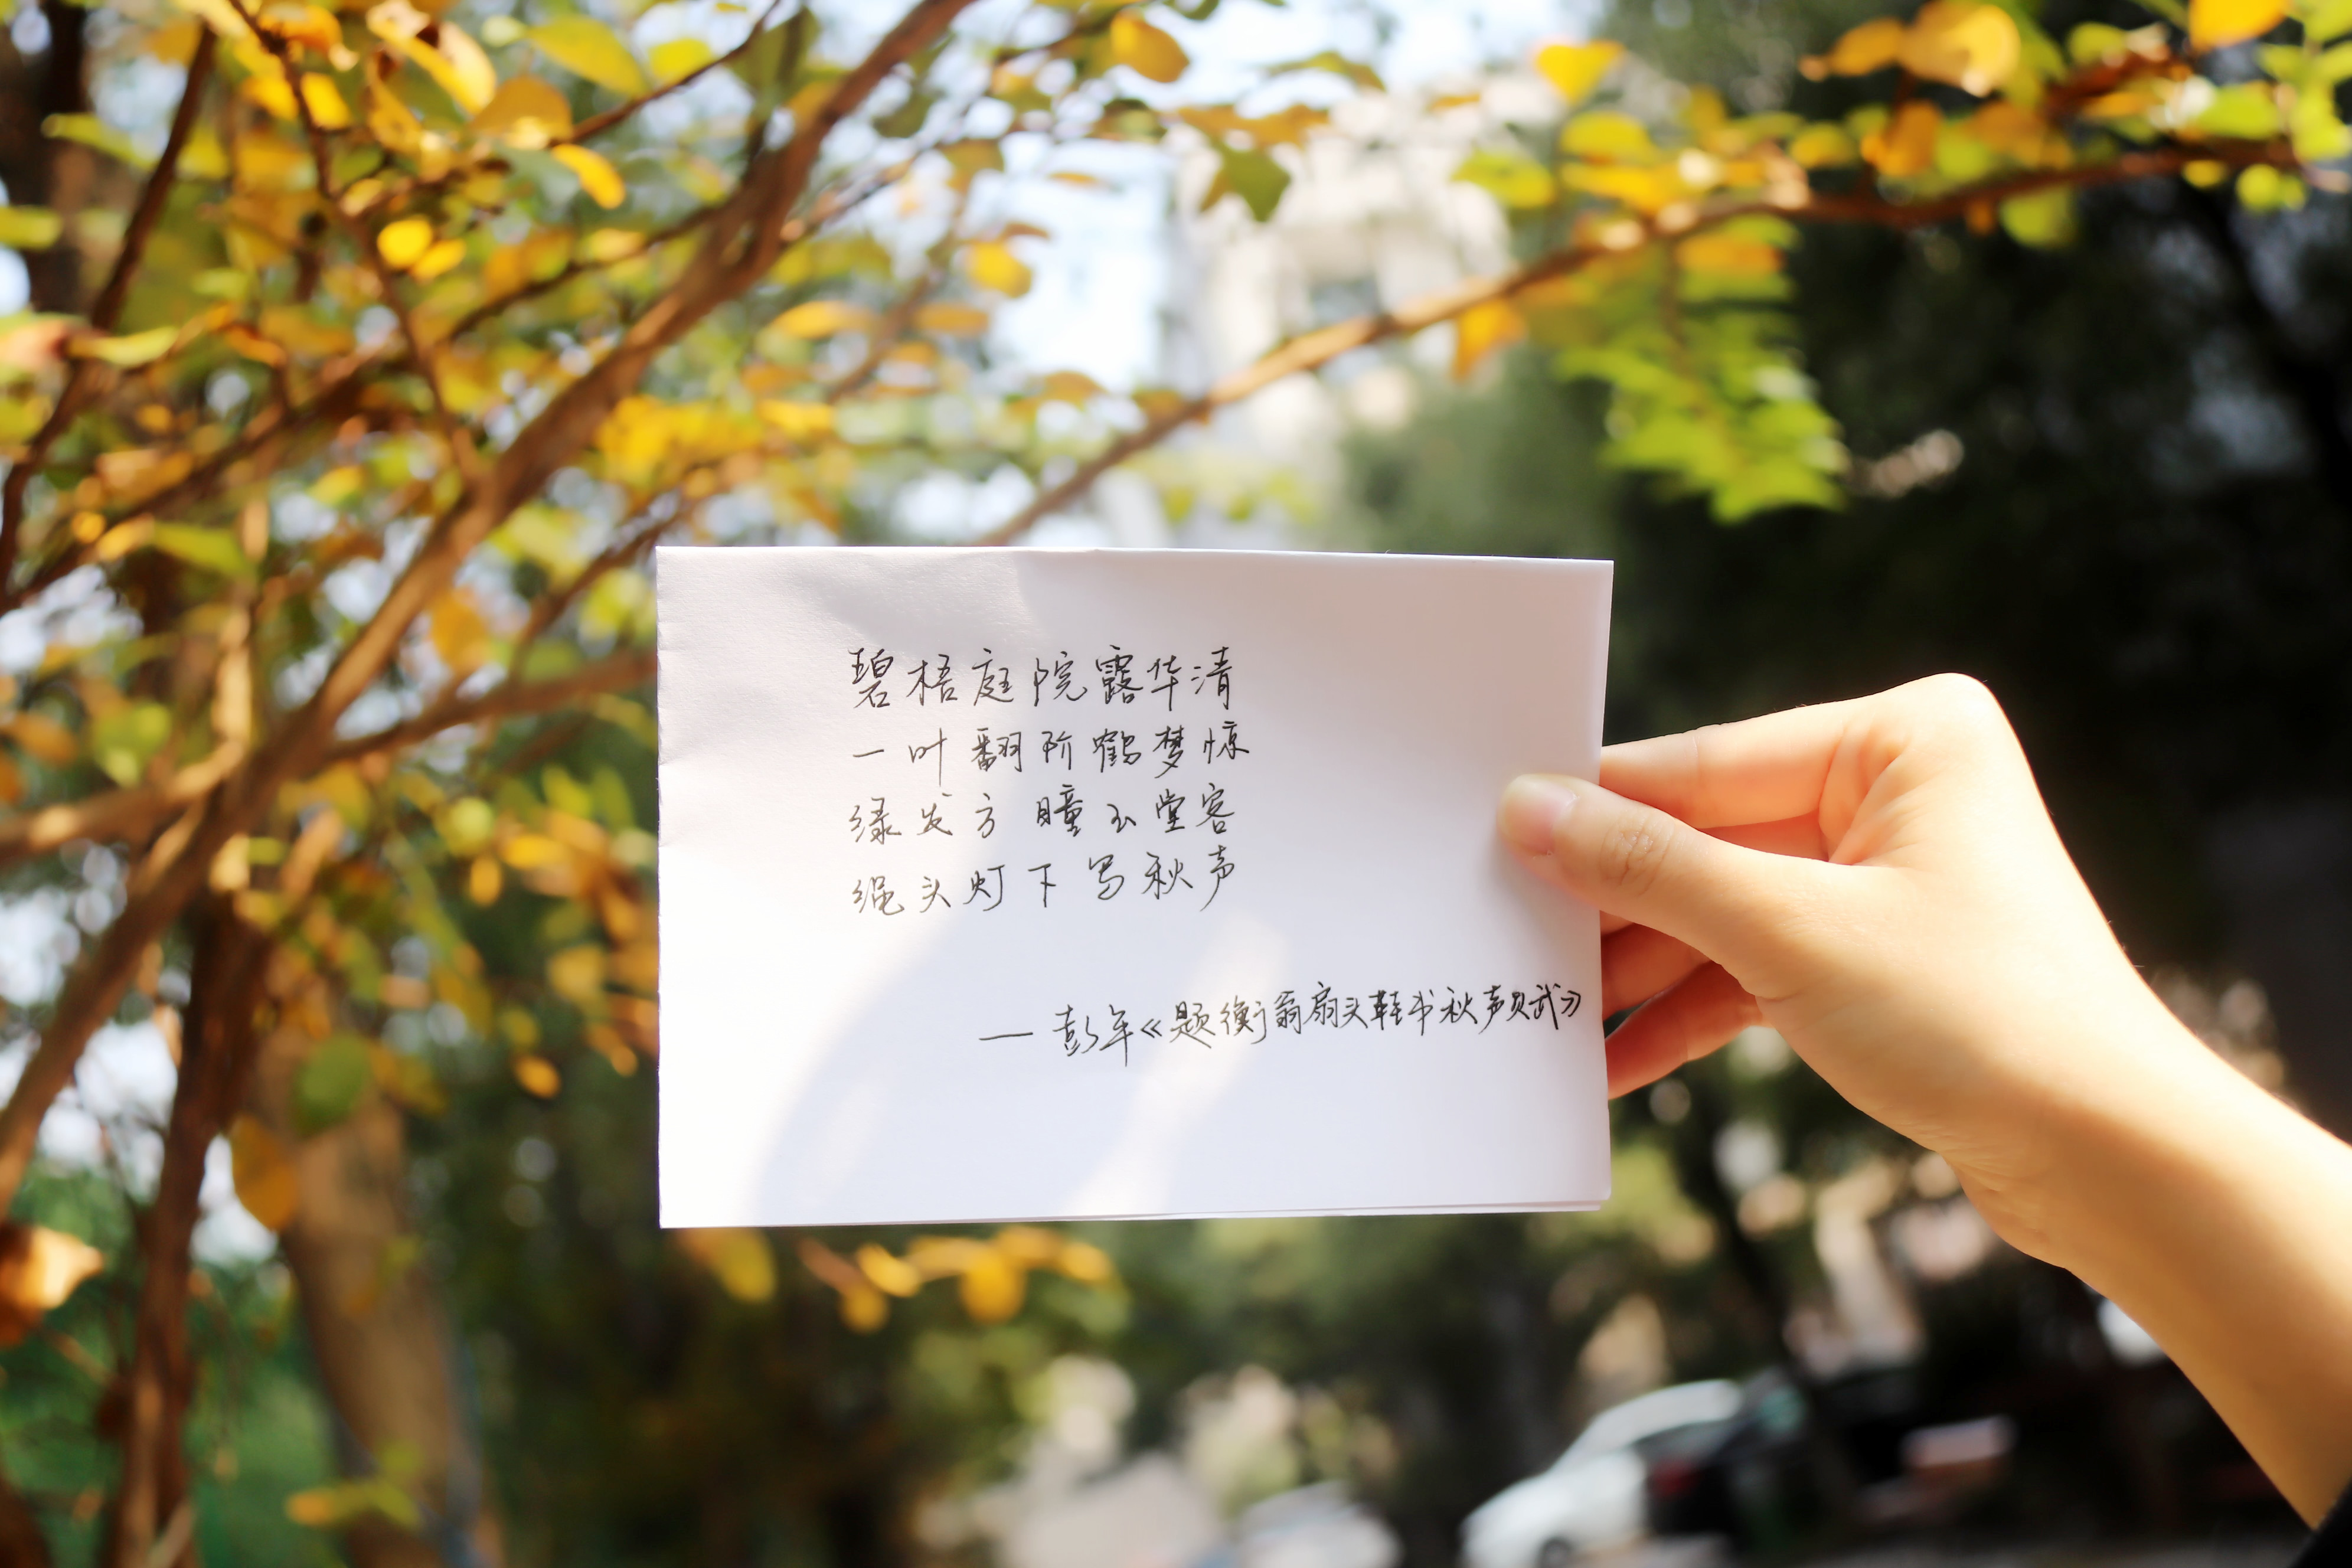 碧梧庭院露华清
一叶翻阶鹤梦惊
绿发方瞳玉堂客
绳头灯下写秋声
— 彭年《题衡翁扇头鞋书秋声贝武》